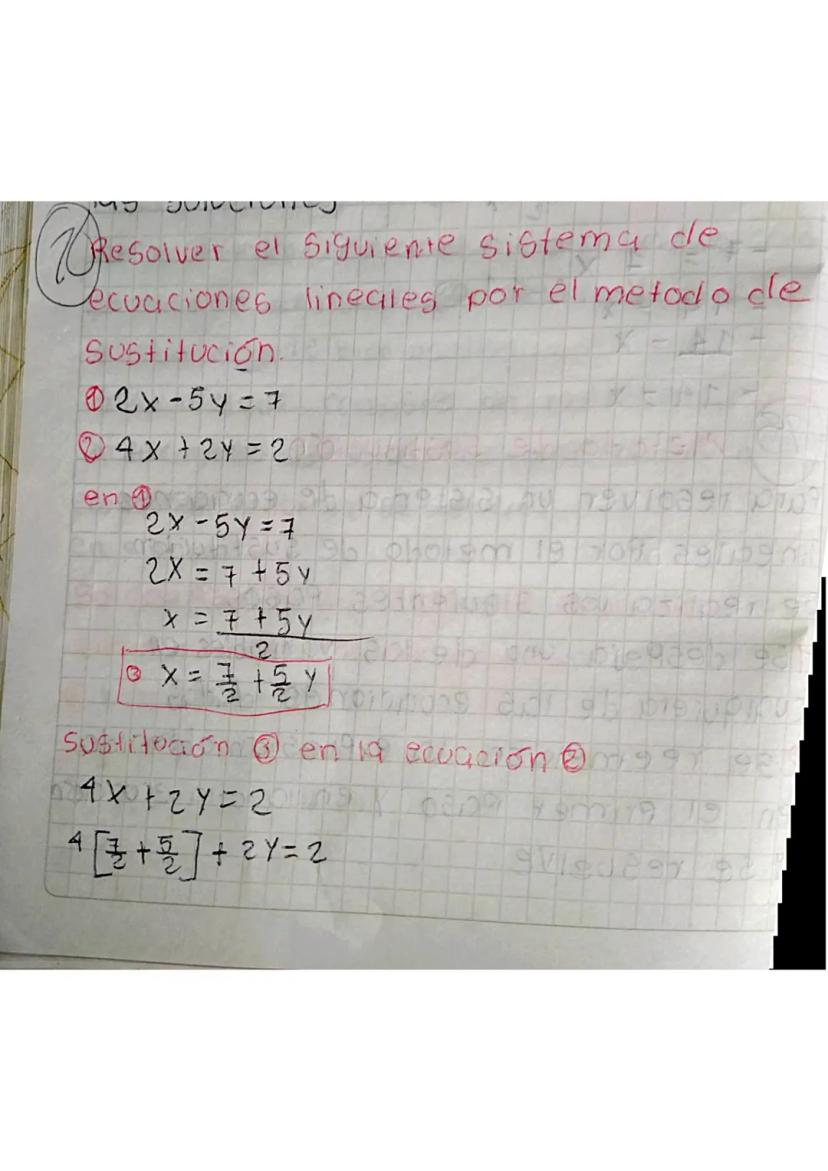 Resolver el siguiente sistema de
ecuaciones lineales por el metodo de
sustitución.
① 2x - 5y = 7
② 4x + 2y = 2
en ①
2x - 5y = 7
2x = 7 + 5y
x = 7 + 5y
2
③ x = 7/2 + 5/2 y
Sustitución ③ en la ecuación ②
4x + 2y = 2
4 [7/2 + 5/2] + 2y = 2